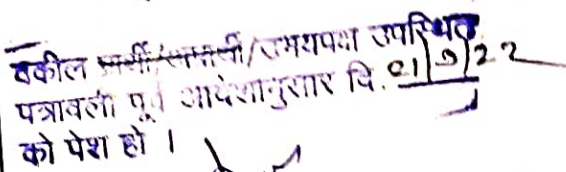 वकील प्रार्थी/अप्रार्थी/उभयपक्ष उपस्थित
पत्रावली पूर्व आदेशानुसार दि.
को पेश हो ।